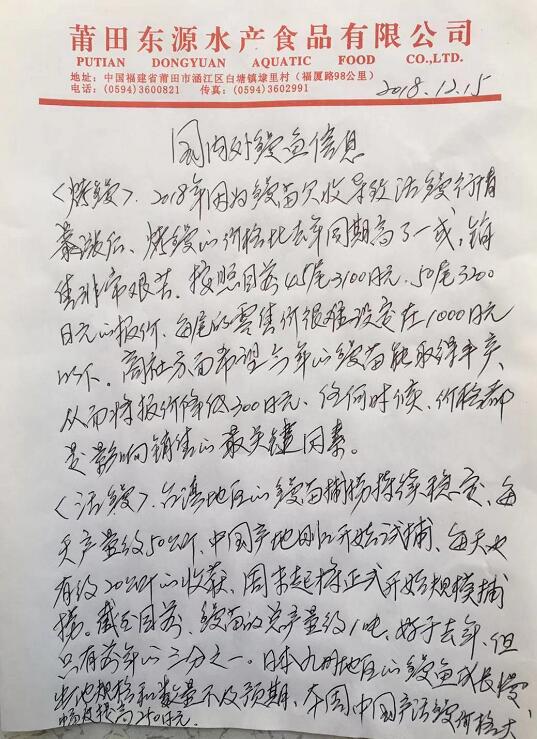 莆田东源水产食品有限公司
PUTIAN DONGYUAN AQUATIC FOOD CO.,LTD.
地址：中国福建省莆田市涵江区白塘镇埭里村（福厦路98公里）
电话：(0594)3600821 传真：(0594)3602991
2018.12.15
国内外鳗鱼信息
<烤鳗>. 2018年因为鳗苗欠收导致活鳗行情
暴涨后、烤鳗的价格比去年同期高了一成，销
售非常艰苦。按照目前45尾3100日元、50尾3200
日元的报价，每尾的零售价很难设定在1000日元
以下。商社方面希望今年的鳗苗能取得丰产、
从而将报价降低300日元、任何时候、价格都
是影响销售的最关键因素。
<活鳗>. 台湾地区的鳗苗捕捞持续稳定、每
天产量约50公斤、中国产地刚刚开始试捕、每天也
有约20公斤的收获、周末起将正式开始规模捕
捞。截至目前、鳗苗的总产量约1吨、好于去年、但
只有前年的三分之一。日本九州地区的鳗鱼成长慢、
出池规格和数量不及预期、本周中国产活鳗价格大
幅度提高250日元。